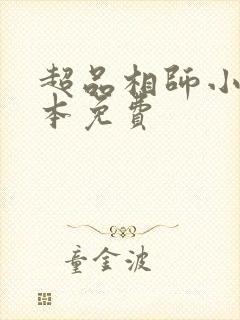 超品相師小
本免費
童金波